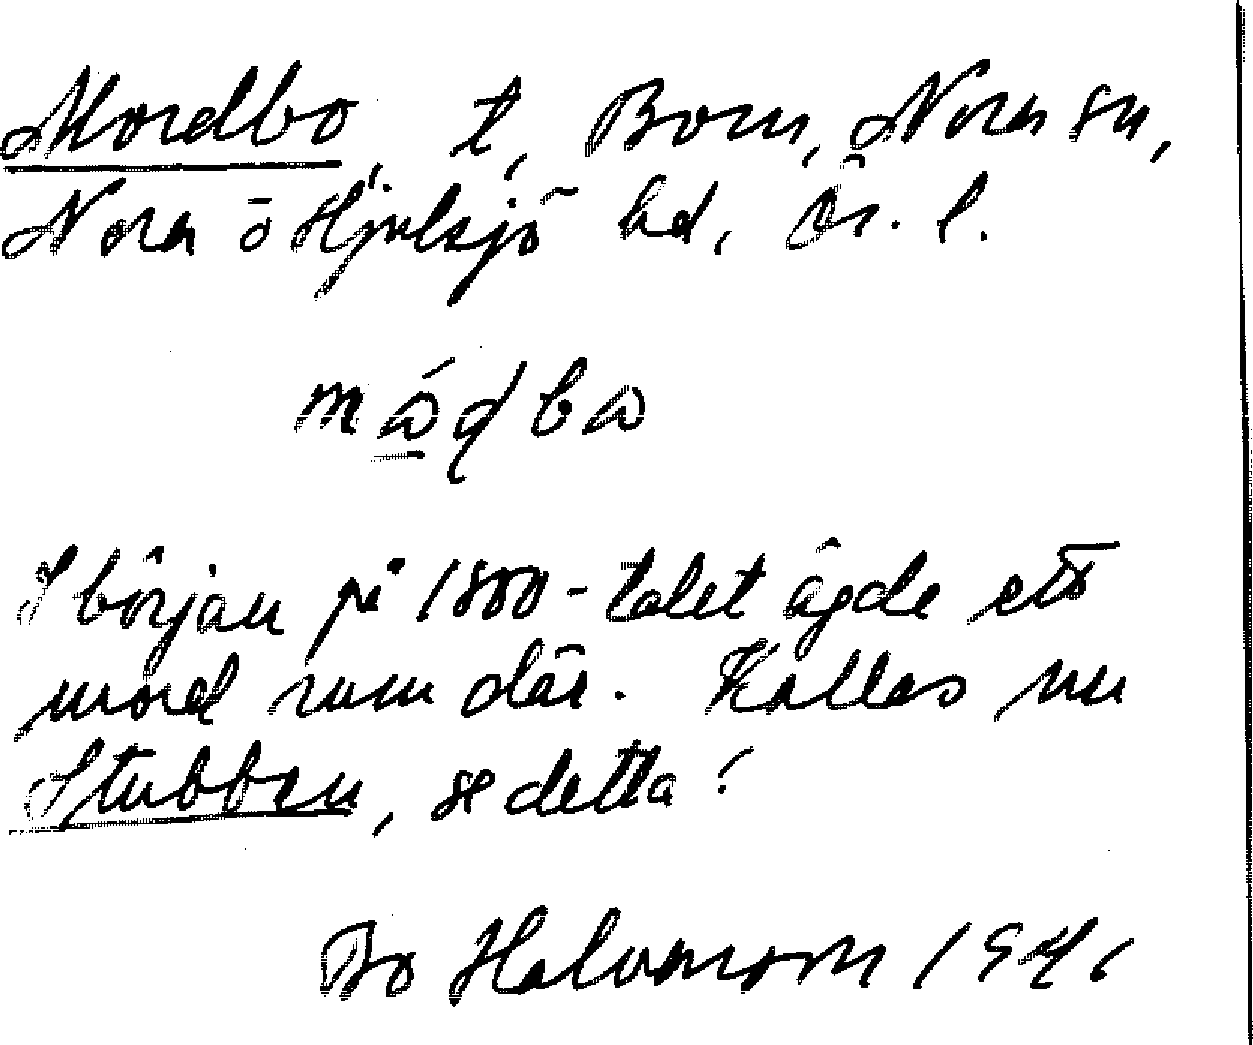 Mordbo, t, Born, Nora sn,
Nora ō Hjulsjö hd, Ör. l.
I början på 1800-talet ägde ett
mord rum där. Kallas nu
Stubben, se detta!
Bo Halvarson 1941